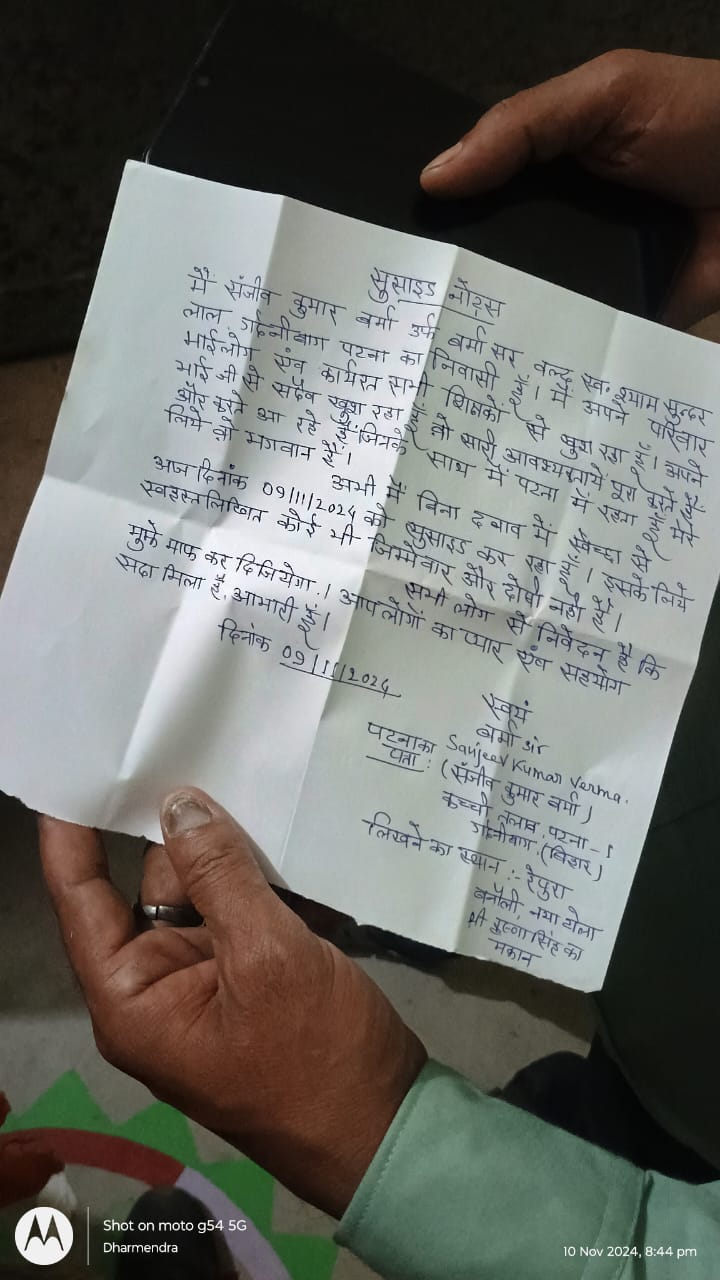 सुसाइड नोट्स
में संजीव कुमार वर्मा उर्फ वर्मा सर वल्द स्व॰ श्याम सुन्दर
लाल गर्दनीबाग पटना का निवासी हूँ। में अपने परिवार
भाईलोग संव कार्यरत सभी शिक्षकों से खुश रहा हूँ। अपने
भाई जी से सदैव खुश रहा हूँ वो सारी आवश्यकतायें पूरा करते हैं
और करते आ रहे हैं जिनके साथ में पटना में रहता हूँ मेरे
लिये वो भगवान हैं।
अभी में बिना दबाव में स्वेच्छा से
अज दिनांक 09/11/2024 को सुसाइड कर रहा हूँ। इसके लिये
स्वहस्तलिखित कोई भी जिम्मेवार और दोषी नही हैं।
सभी लोग से निवेदन हैं कि
मुझे माफ कर दिजियेगा.। आपलोगों का प्यार संव सहयोग
सदा मिला हैं, आभारी हूँ।
दिनांक 09/11/2024
स्वयं
वर्मा sir
Sanjeev Kumar Verma.
पटना का पता : (संजीव कुमार वर्मा)
कच्ची तलाब, पटना-1
गर्दनीबाग (बिहार)
लिखने का स्थान :- हैपुरा
बनौली, नया टोला
श्री मुन्ना सिंह का
मकान
Shot on moto g54 5G
Dharmendra
10 Nov 2024, 8:44 pm